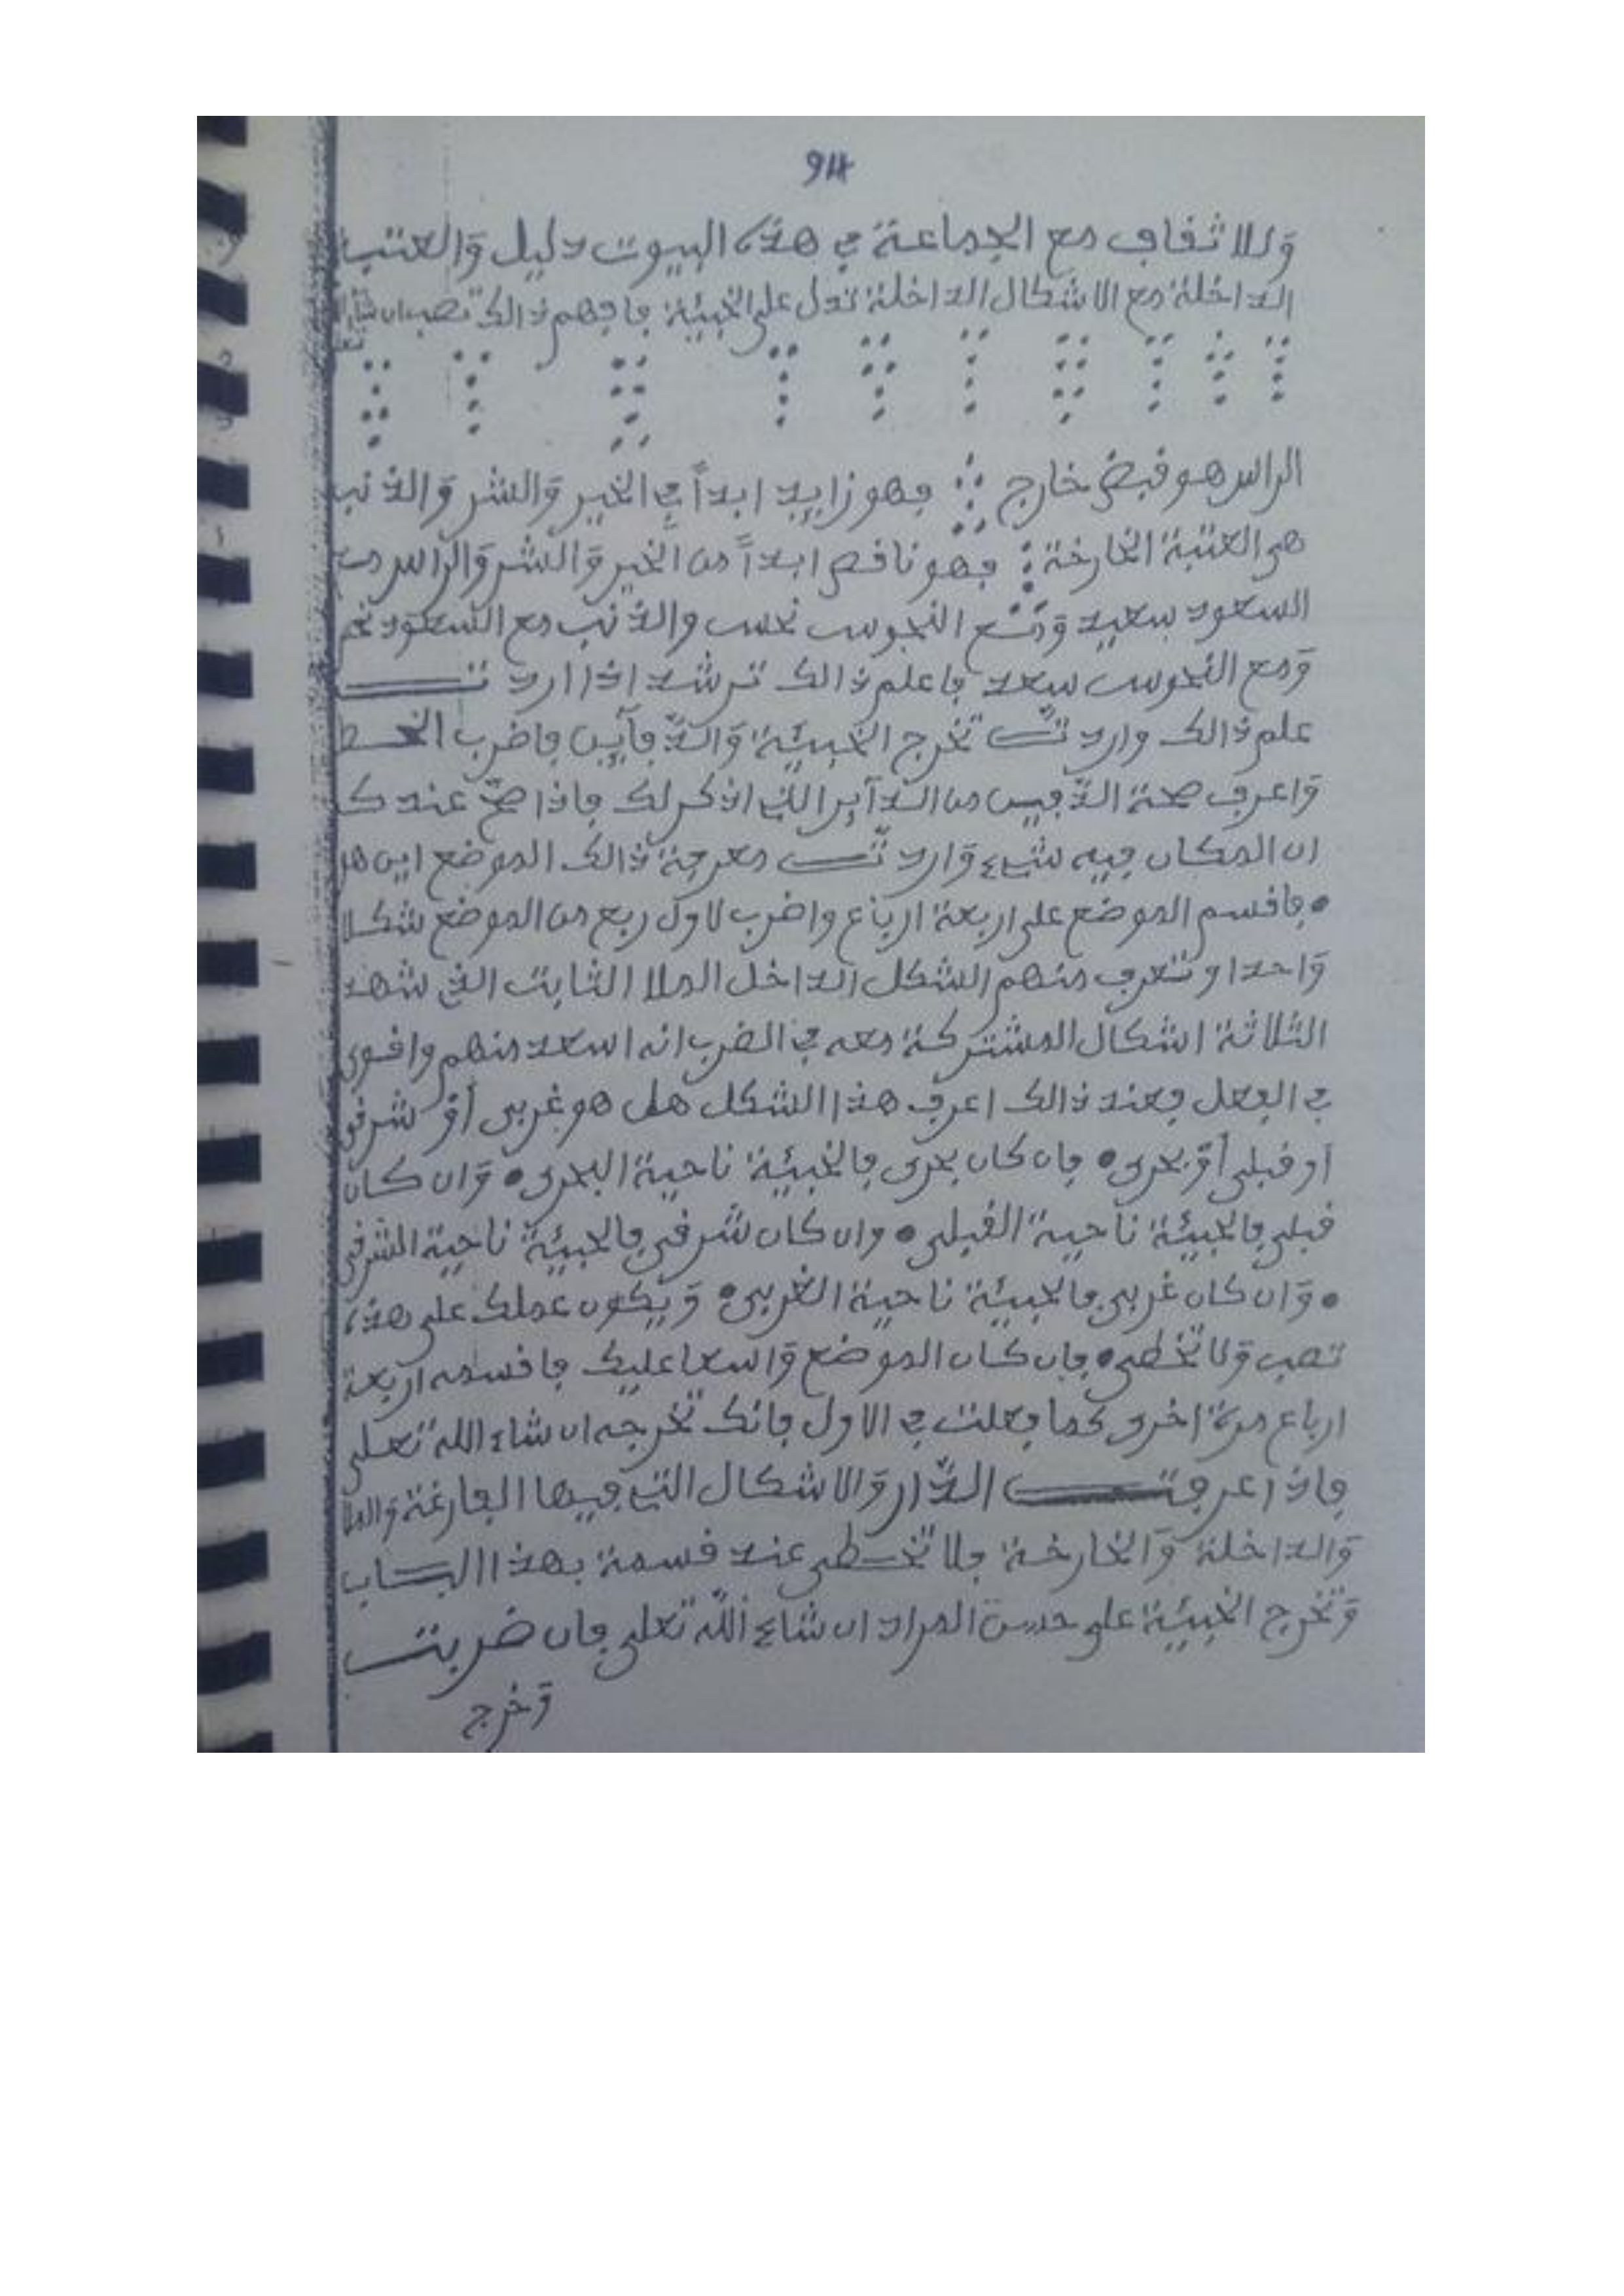 94
وللاثفاف مع الجماعة في هذه البيوت دليل والعتب
الداخلة مع الاشكال الداخلة تدل على الخبيئة فافهم ذالك تصب ان شاء
الراس هو فبض خارج فهو زايد ابداً في الخير والشر والذنب
هي العتبة الخارخة فهو نافص ابداً من الخير والشر والراس مع
السعود سعيد ومع النحوس نحس والذنب مع السعود نحس
ومع النحوس سعد فاعلم ذالك ترشد اذا اردت
علم ذالك واردت تخرج الخبيئة والدفآين فاضرب الخط
واعرف صحة الدفين من الدآير الذي اذكر لك فاذا صح عندك
ان المكان فيه شيء واردت معرفة ذالك الموضع اين هو
فافسم الموضع على اربعة ارباع واضرب لاول ربع من الموضع شكلا
واحدا وتعرف منهم الشكل الداخل الملا الثابت الذي شهد
الثلاثة اشكال المشتركة معه في الضرب انه اسعد منهم وافوى
في الفعل فعند ذالك اعرف هذا الشكل هل هو غربي أو شرفي
أو فبلي أو بحري فان كان بحري فالخبيئة ناحية البحري وان كان
فبلي فالخبيئة ناحية الفبلي وان كان شرفي فالخبيئة ناحية الشرفي
وان كان غربي فالخبيئة ناحية الغربي ويكون عملك على هذه
تصب ولا تخطي فان كان الموضع واسعا عليك فافسمه اربعة
ارباع مرة اخرى كما فعلت في الاول فانك تخرجه ان شاء الله تعلى
فاذا عرفت الدار والاشكال التي فيها الفارغة والملا
والداخلة والخارخة فلا تخطي عند فسمة بهذا الباب
وتخرج الخبيئة على حسن المراد ان شاء الله تعلى فان ضربت
وخرج